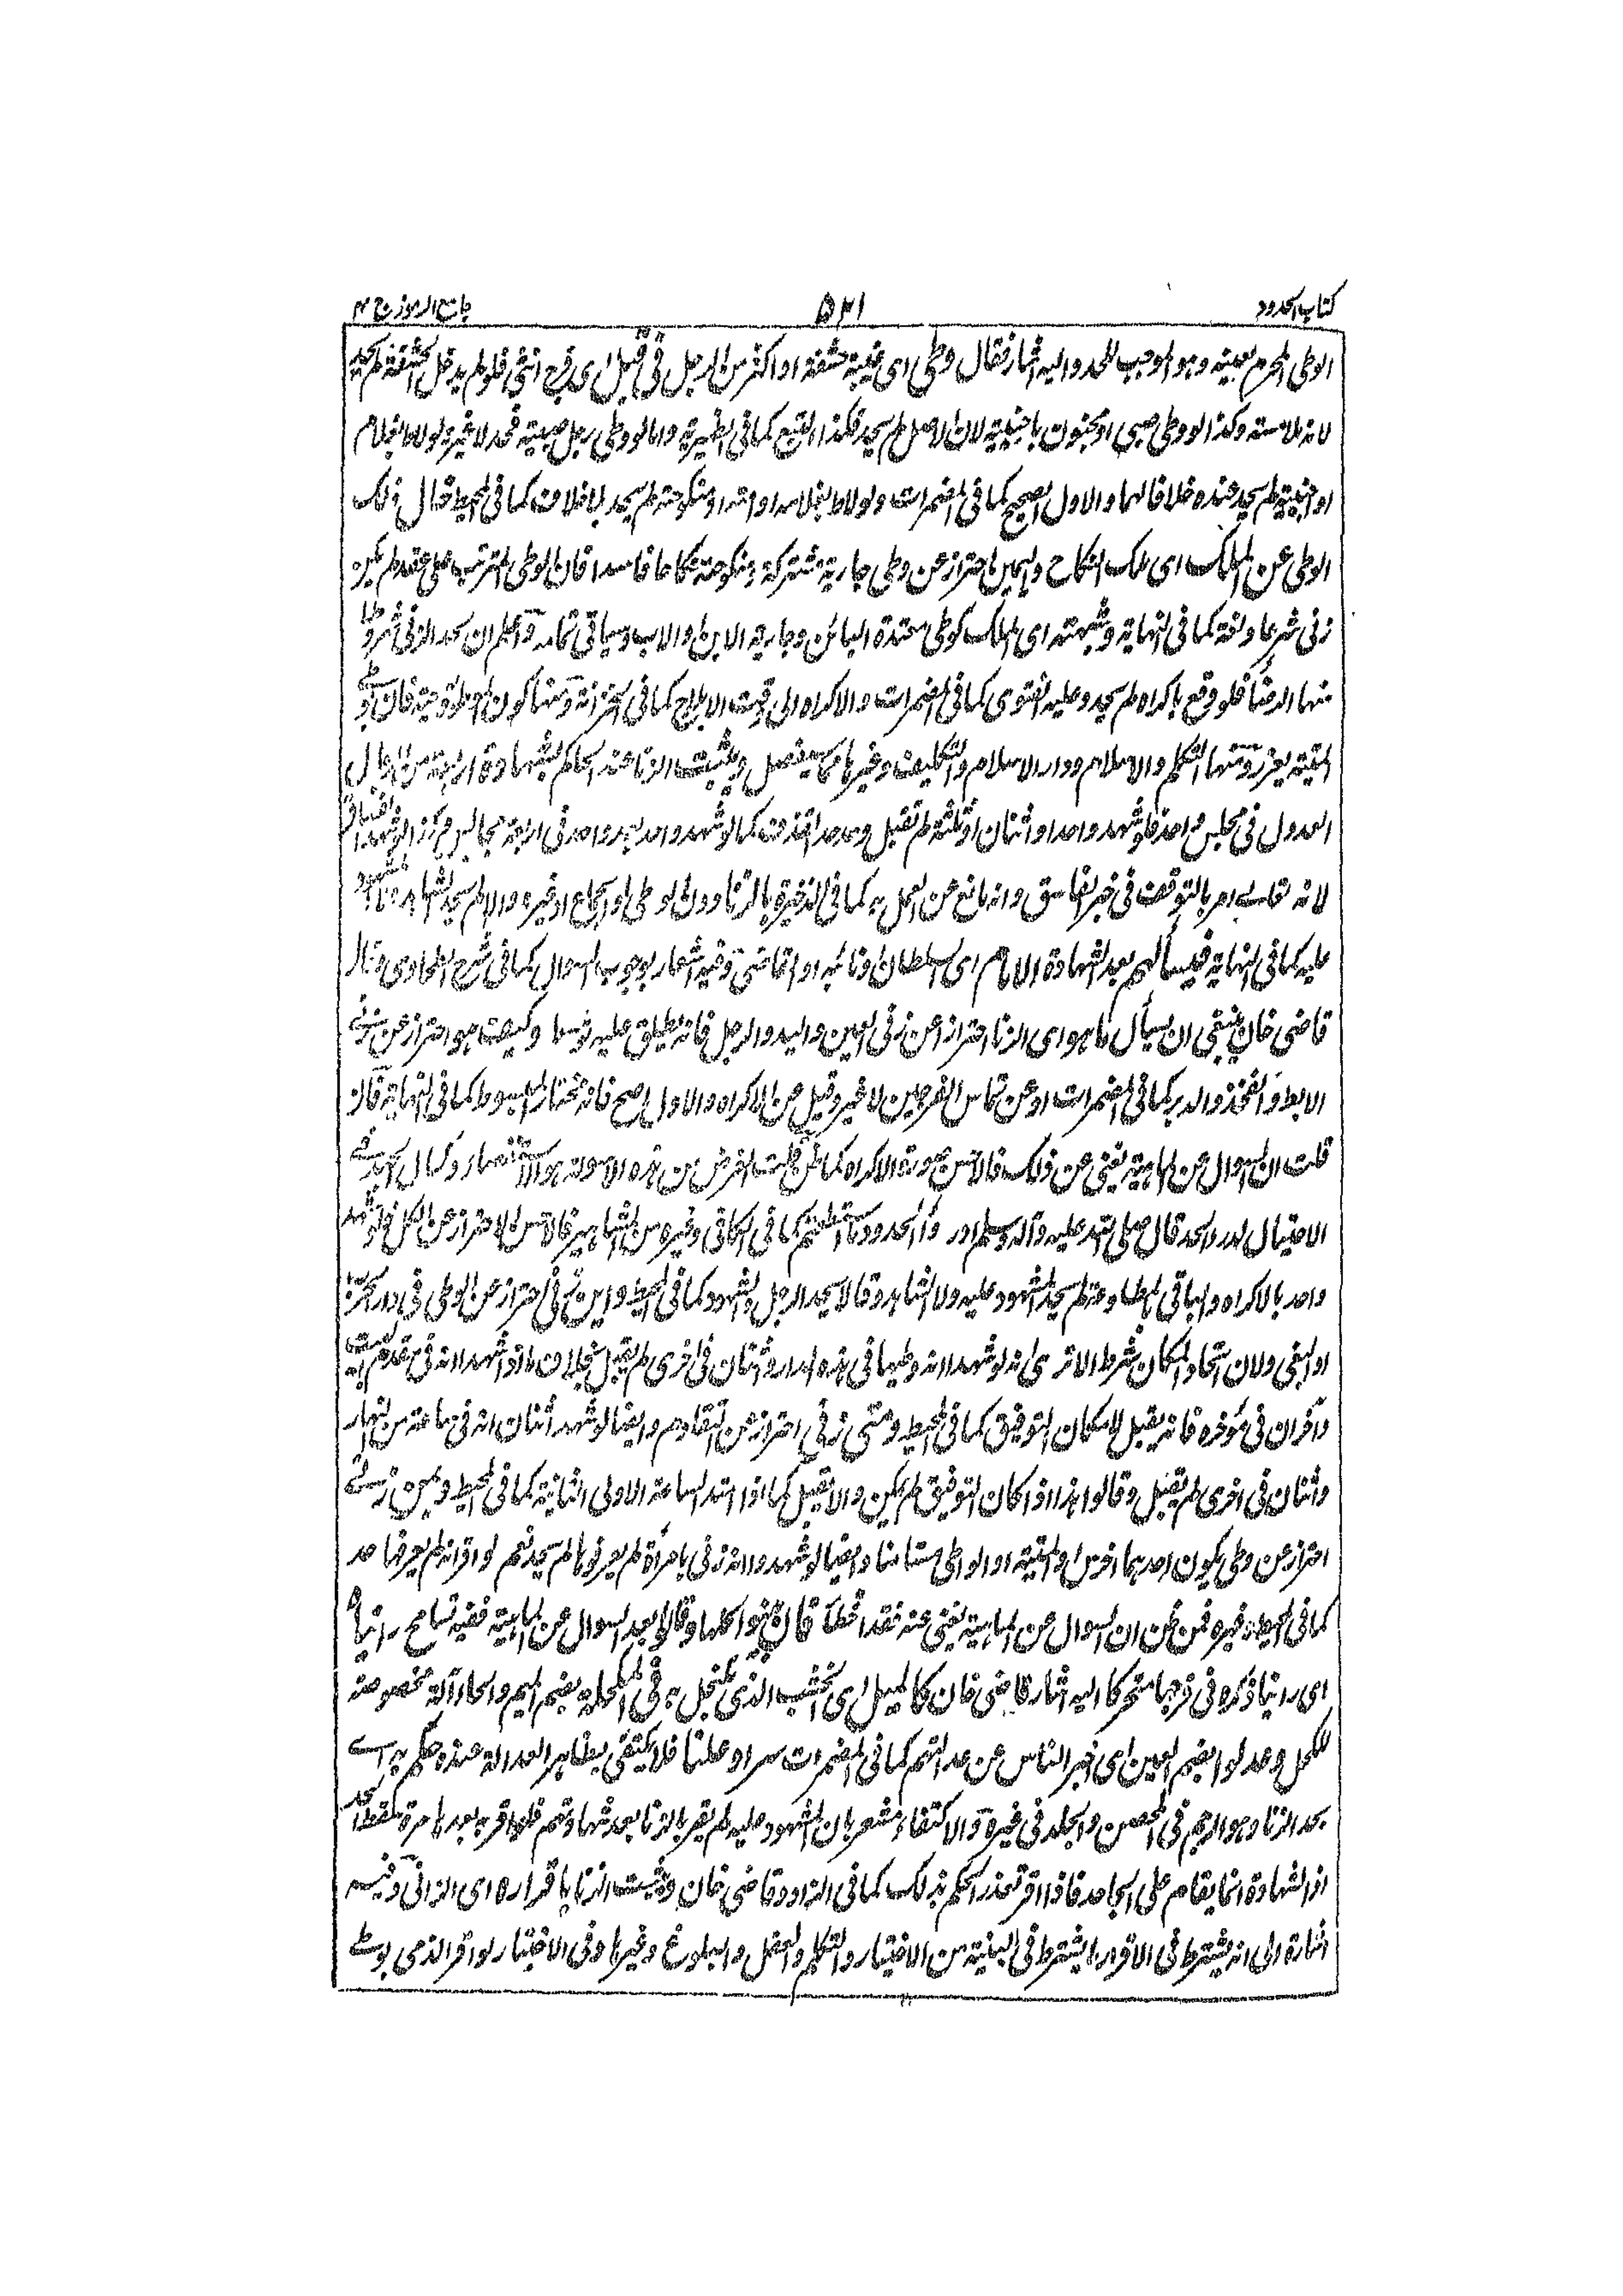 كتاب الحدود
٥٣١
جامع الرموز ج ٢
الوطى المحرم بعينه وهو الموجب للحد واليه اشار فقال وطى اى غيبة حشفة او اكثر من الرجل فى قبل اى فرج انثى فلو لم يدخل الحشفة لم يحد
لانه ملامسة وكذا لو وطى صبى او مجنون باجنبية لان الاصل لم يحد فكذا التبع كما فى الظهيرية واما لو وطى رجل صبية فحد لا غير ولو لاط بغلام
او اجنبية لم يحد عنده خلافا لهما والاول الصحيح كما فى المضمرات ولو لاط بغلامه او امته او منكوحته لم يحد بلا خلاف كما فى المحيط خال ذلك
الوطى عن الملك اى ملك النكاح واليمين احتراز عن وطى جارية مشتركة ومنكوحة نكاحا فاسدا فان الوطى المترتب على عقد لم يكن
زنى شرعا ولغة كما فى النهاية وشبهته اى الملك كوطى معتدة البائن وجارية الابن والاب وسياتى تمامه واعلم ان لحد الزنى شروطا
منها الرضا فلو وقع باكراه لم يحد وعليه الفتوى كما فى المضمرات والاكراه الى وقت الايلاج كما فى الخزانة ومنها كون الموطوءة حية فان وطى
الميتة يعزر ومنها التكلم والاسلام ودار الاسلام والتكليف وغيرها مما سيفصل ويثبت الزنا عند الحاكم بشهادة اربعة من الرجال
العدول فى مجلس واحد فلو شهد واحد او اثنان او ثلثة لم تقبل وحد حد القذف كما لو شهد واحد بعد واحد فى اربعة مجالس وكذا لو شهد الفساق
لانه تعالى امر بالتوقف فى خبر الفاسق وانه مانع عن العمل به كما فى الذخيرة بالزنا دون الوطى او الجماع او غيره والا لم يحد الشاهد والمشهود
عليه كما فى النهاية فيسألهم بعد الشهادة الامام اى السلطان ونائبه او القاضى وفيه اشعار بوجوب السوال كما فى شرح الطحاوى وقال
قاضى خان ينبغى ان يسأل ما هو اى الزنا احتراز عن زنى العين واليد والرجل فانه يطلق عليه توسعا وكيف هو احتراز عن زنى
الابط والفخذ والدبر كما فى المضمرات او عن تماس الفرجين لا غير وقيل عن الاكراه والاول اصح فانه مختار المبسوط كما فى النهاية فان
قلت ان السوال عن الماهية يغنى عن ذلك فالاحسن صورة الاكراه كما ظن قلت الغرض من هذه الاسولة هو الاستقصار وكمال
الاحتيال لدرء الحد قال صلى الله عليه وآله وسلم ادرءوا الحدود ما استطعتم كما فى الكافى وغيره من المشاهير فالاحسن الاحتراز عن الكل فلو شهد
واحد بالاكراه والباقى بالمطاوعة لم يحد المشهود عليه ولا الشاهد وقالا يحد الرجل والشهود كما فى المحيط واين زنى احتراز عن الوطى فى دار الحرب
او البغى ولان اتحاد المكان شرط الا ترى انه لو شهدا انه وطيها فى هذه الدار واثنان فى اخرى لم يقبل بخلاف ما اذا شهدا انه فى مقدم البيت
وآخران فى مؤخره فانه يقبل لامكان التوفيق كما فى المحيط ومتى زنى احتراز عن التقادم وايضا لو شهد اثنان انه فى ساعة من النهار
واثنان فى اخرى لم يقبل وقالوا هذا اذا كان التوفيق لم يمكن والا يقبل كما اذا امتد الساعة الاولى الى الثانية كما فى المحيط وبمن زنى
احتراز عن وطى يكون احدهما اخرس او الميتة او الواطى مستامنا وايضا لو شهدوا انه زنى بامرأة لم يعرفوها لم يحد نعم لو اقر انه لم يعرفها حد
كما فى المحيط وغيره فمن ظن ان السوال عن الماهية يغنى عنه فقد اخطأ فان بينوا كلها وقالوا بعد السوال عن الماهية ففيه تسامح رايناه
اى راينا ذكره فى فرجها متحركا اليه اشار قاضى خان كالميل اى الخشب الذى يكتحل به فى المكحلة بضم الميم والحاء آلة مخصوصة
للكحل وعدلوا بضم العين اى اخبر الناس عن عدالتهم كما فى المضمرات سرا وعلنا فلا يكتفى بظاهر العدالة عنده حكم به اى
بحد الزنا وهو الرجم فى المحصن والجلد فى غيره والاكتفاء مشعر بان المشهود عليه لم يقر بالزنا بعد شهادتهم فلو اقر به بعدها مرة سقط الحد
اذ الشهادة انما يقام على الجاحد فاذا اقر تعذر الحكم بذلك كما فى الزاد وقاضى خان ويثبت الزنا باقراره اى الزانى وفيه
اشارة الى انه يشترط فى الاقرار ما يشترط فى البينة من الاختيار والتكلم والعقل والبلوغ وغيرها وفى الاختيار لو اقر الذمى بوطى